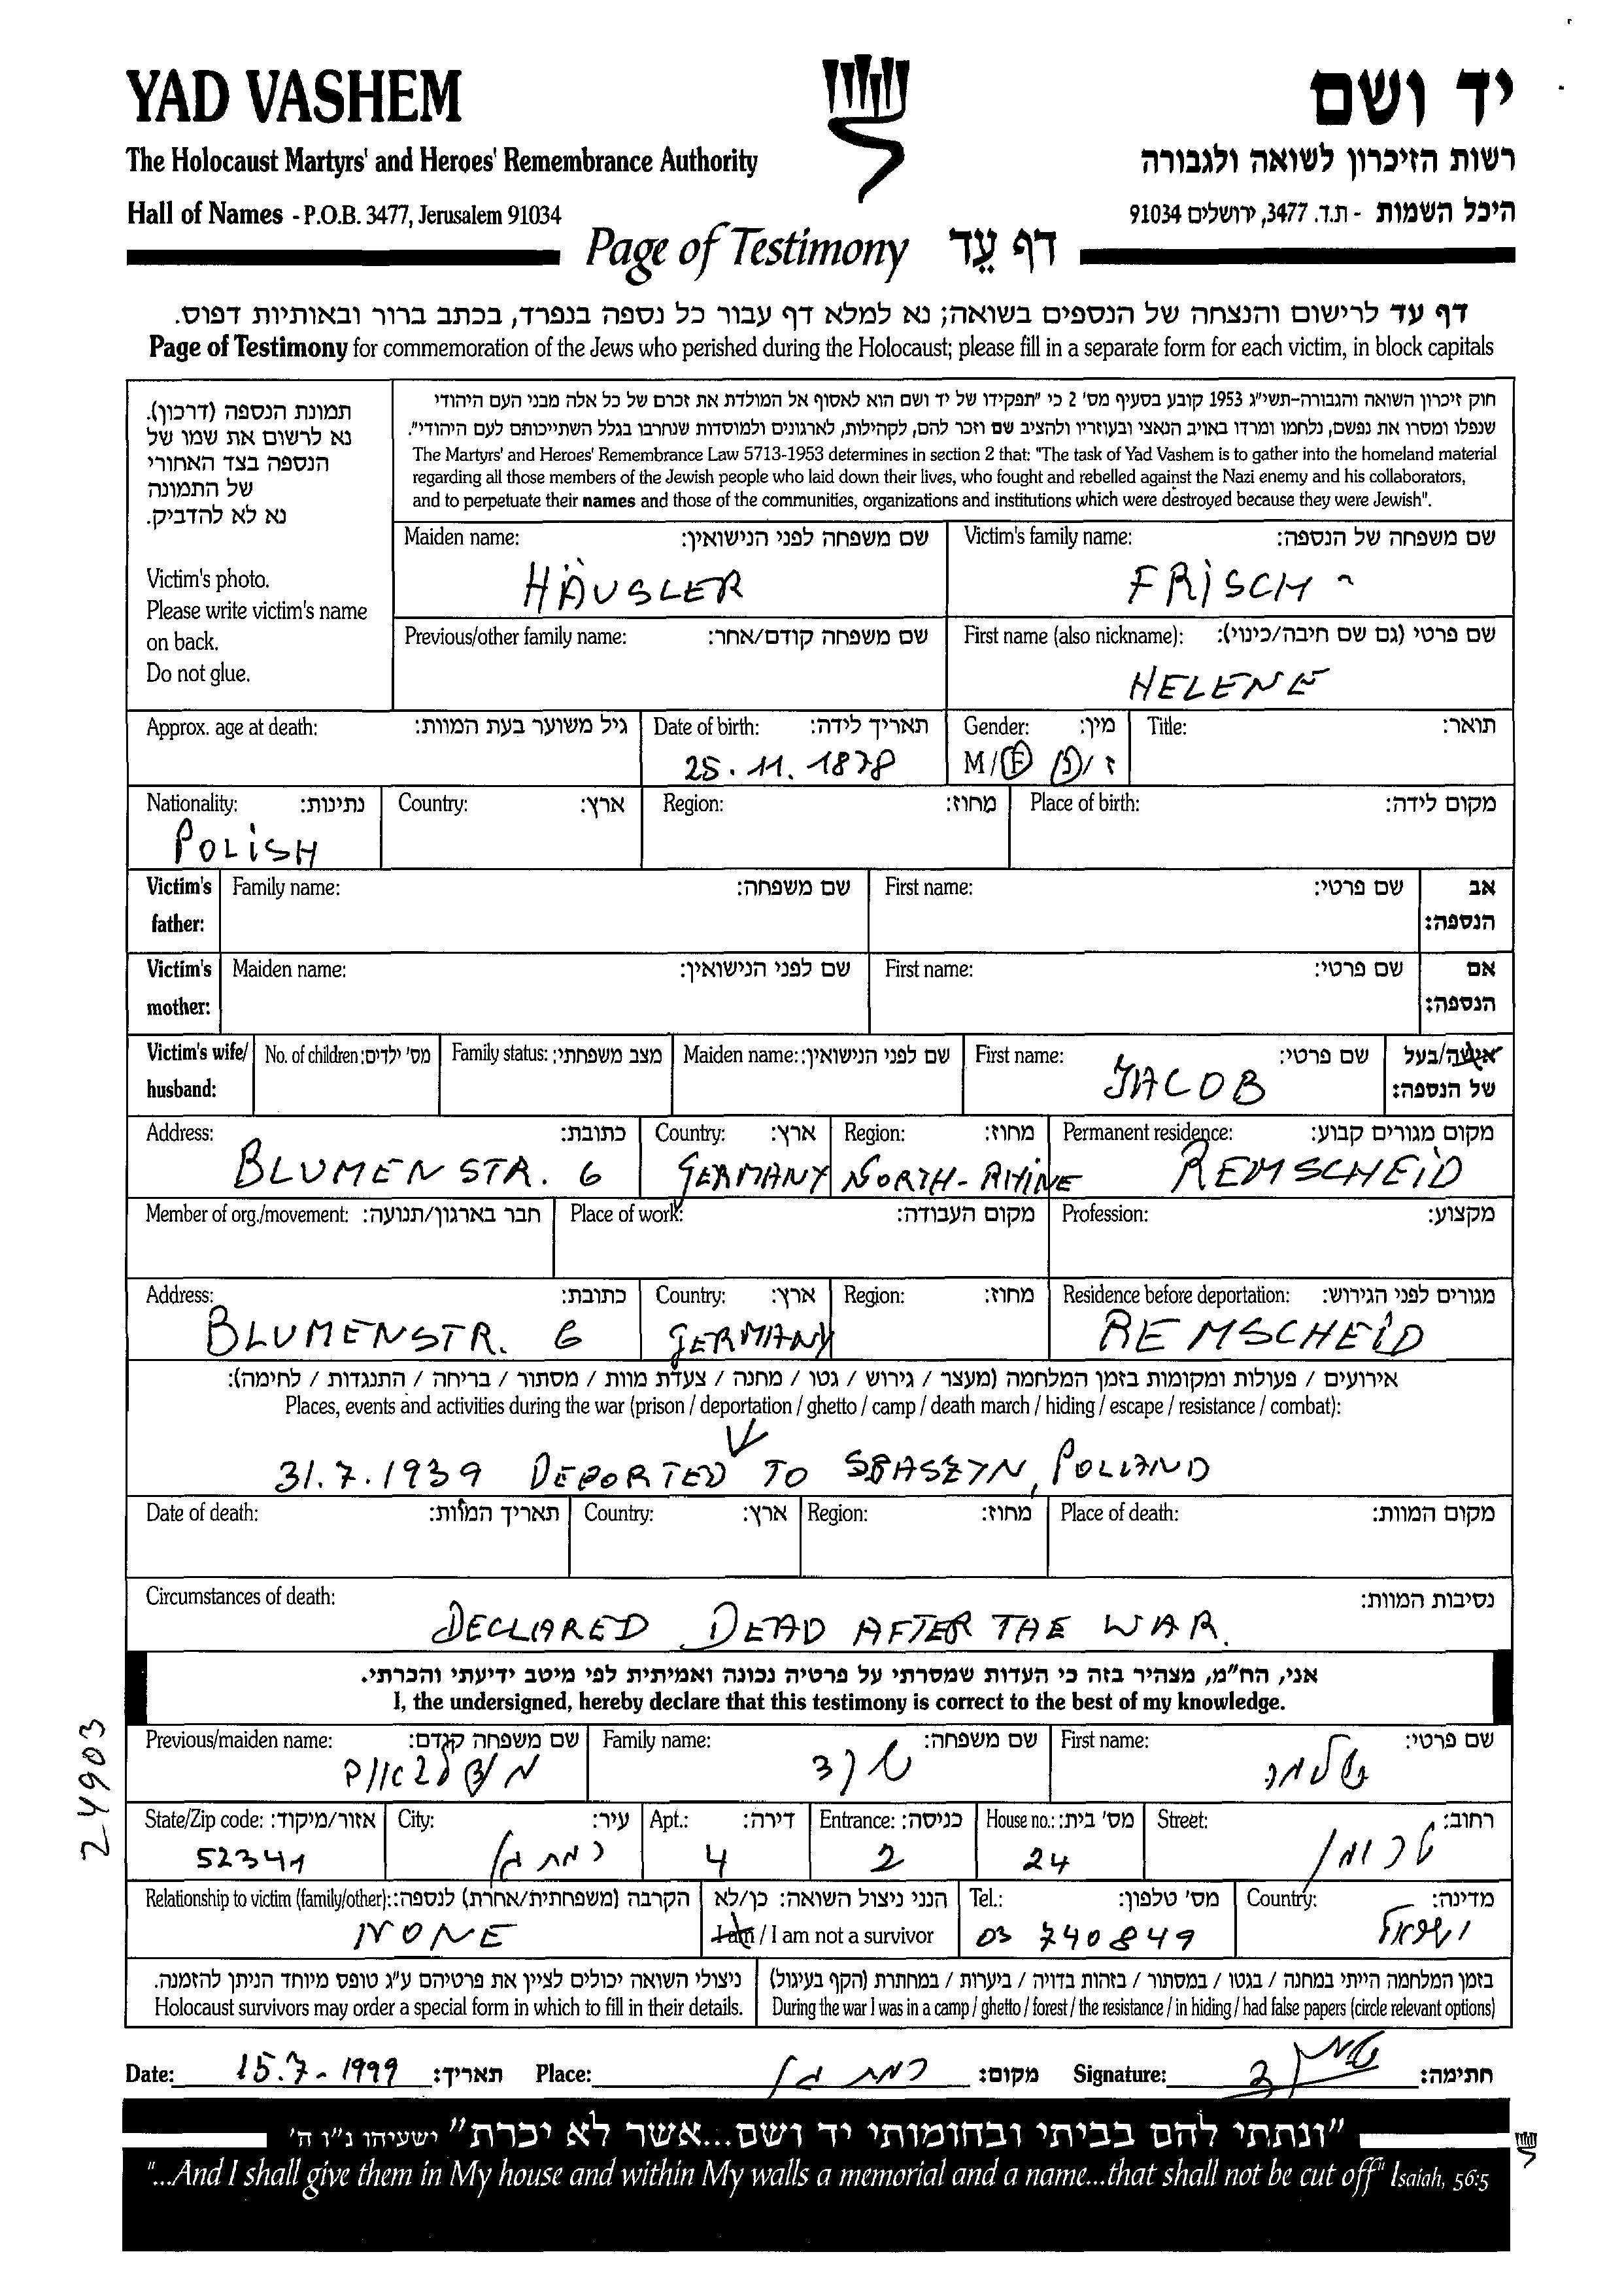 YAD VASHEM
יד ושם
The Holocaust Martyrs' and Heroes' Remembrance Authority
רשות הזיכרון לשואה ולגבורה
Hall of Names - P.O.B. 3477, Jerusalem 91034
היכל השמות - ת.ד. 3477, ירושלים 91034
Page of Testimony דף עֵד
דף עד לרישום והנצחה של הנספים בשואה; נא למלא דף עבור כל נספה בנפרד, בכתב ברור ובאותיות דפוס.
Page of Testimony for commemoration of the Jews who perished during the Holocaust; please fill in a separate form for each victim, in block capitals
תמונת הנספה (דרכון).
נא לרשום את שמו של
הנספה בצד האחורי
של התמונה
נא לא להדביק.
Victim's photo.
Please write victim's name
on back.
Do not glue.
חוק זיכרון השואה והגבורה-תשי"ג 1953 קובע בסעיף מס' 2 כי "תפקידו של יד ושם הוא לאסוף אל המולדת את זכרם של כל אלה מבני העם היהודי
שנפלו ומסרו את נפשם, נלחמו ומרדו באויב הנאצי ובעוזריו ולהציב שם וזכר להם, לקהילות, לארגונים ולמוסדות שנחרבו בגלל השתייכותם לעם היהודי".
The Martyrs' and Heroes' Remembrance Law 5713-1953 determines in section 2 that: "The task of Yad Vashem is to gather into the homeland material
regarding all those members of the Jewish people who laid down their lives, who fought and rebelled against the Nazi enemy and his collaborators,
and to perpetuate their names and those of the communities, organizations and institutions which were destroyed because they were Jewish".
Maiden name: שם משפחה לפני הנישואין: Victim's family name: שם משפחה של הנספה:
HÄUSLER FRISCH
Previous/other family name: שם משפחה קודם/אחר: First name (also nickname): שם פרטי (גם שם חיבה/כינוי):
HELENE
Approx. age at death: גיל משוער בעת המוות: Date of birth: תאריך לידה: Gender: מין: Title: תואר:
25.11.1878 M/F ז/נ
Nationality: נתינות: Country: ארץ: Region: מחוז: Place of birth: מקום לידה:
POLISH
Victim's father: Family name: שם משפחה: First name: שם פרטי: אב הנספה:
Victim's mother: Maiden name: שם לפני הנישואין: First name: שם פרטי: אם הנספה:
Victim's wife/husband: No. of children: מס' ילדים: Family status: מצב משפחתי: Maiden name: שם לפני הנישואין: First name: שם פרטי: אישה/בעל של הנספה:
JACOB
Address: כתובת: Country: ארץ: Region: מחוז: Permanent residence: מקום מגורים קבוע:
BLUMENSTR. 6 GERMANY NORTH-RHINE REMSCHEID
Member of org./movement: חבר בארגון/תנועה: Place of work: מקום העבודה: Profession: מקצוע:
Address: כתובת: Country: ארץ: Region: מחוז: Residence before deportation: מגורים לפני הגירוש:
BLUMENSTR. 6 GERMANY REMSCHEID
אירועים / פעולות ומקומות בזמן המלחמה (מעצר / גירוש / גטו / מחנה / צעדת מוות / מסתור / בריחה / התנגדות / לחימה):
Places, events and activities during the war (prison / deportation / ghetto / camp / death march / hiding / escape / resistance / combat):
31.7.1939 DEPORTED TO SBASZYN, POLAND
Date of death: תאריך המוות: Country: ארץ: Region: מחוז: Place of death: מקום המוות:
Circumstances of death: נסיבות המוות:
DECLARED DEAD AFTER THE WAR.
אני, הח"מ, מצהיר בזה כי העדות שמסרתי על פרטיה נכונה ואמיתית לפי מיטב ידיעתי והכרתי.
I, the undersigned, hereby declare that this testimony is correct to the best of my knowledge.
24903
Previous/maiden name: שם משפחה קודם: Family name: שם משפחה: First name: שם פרטי:
State/Zip code: אזור/מיקוד: City: עיר: Apt.: דירה: Entrance: כניסה: House no.: מס' בית: Street: רחוב:
52341 רמת גן 4 2 24 טרומן
Relationship to victim (family/other): הקרבה (משפחתית/אחרת) לנספה: הנני ניצול השואה: כן/לא Tel.: מס' טלפון: Country: מדינה:
NONE I am / I am not a survivor 03 740849 ישראל
ניצולי השואה יכולים לציין את פרטיהם ע"ג טופס מיוחד הניתן להזמנה. בזמן המלחמה הייתי במחנה / בגטו / במסתור / בזהות בדויה / ביערות / במחתרת (הקף בעיגול)
Holocaust survivors may order a special form in which to fill in their details. During the war I was in a camp / ghetto / forest / the resistance / in hiding / had false papers (circle relevant options)
Date: 15.7-1999 תאריך: Place: רמת גן מקום: Signature: חתימה:
"ונתתי להם בביתי ובחומותי יד ושם...אשר לא יכרת" ישעיהו נ"ו ה'
"...And I shall give them in My house and within My walls a memorial and a name...that shall not be cut off" Isaiah, 56:5